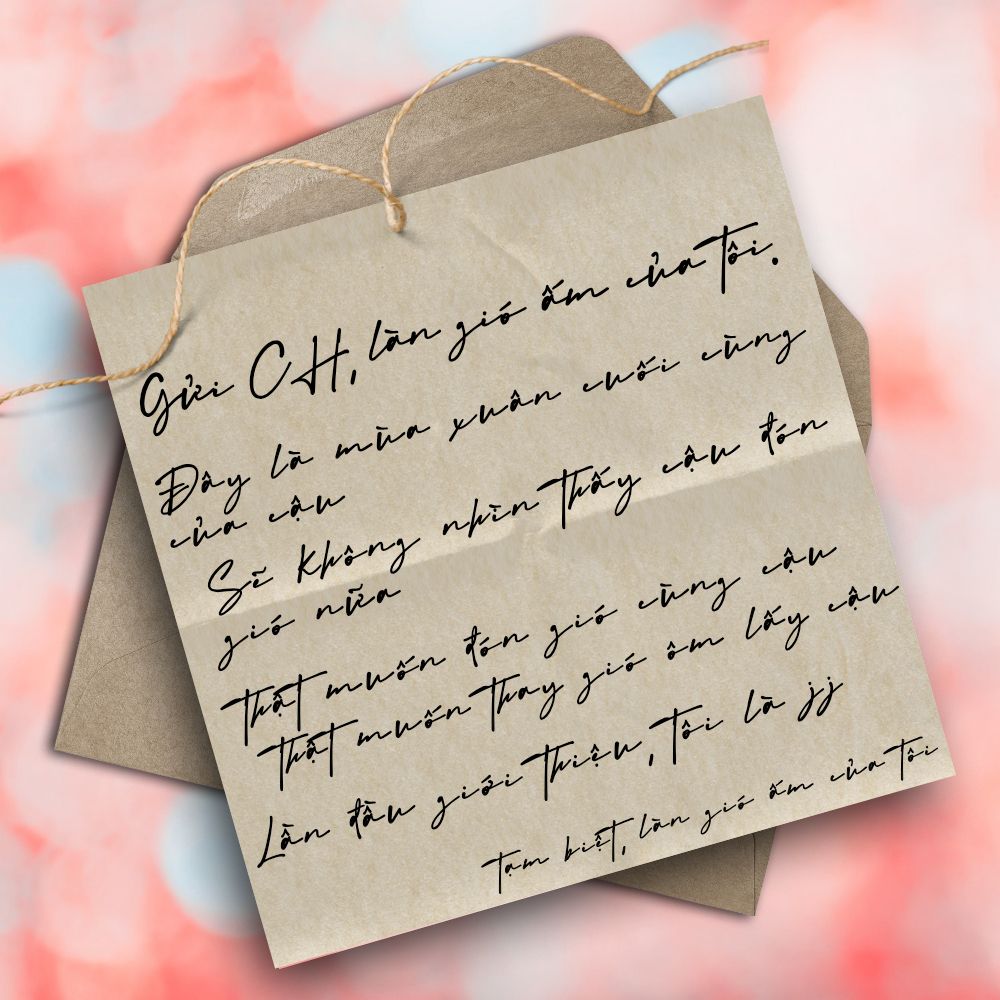 Gửi CH, làn gió ấm của tôi.
Đây là mùa xuân cuối cùng
của cậu
Sẽ không nhìn thấy cậu đón
gió nữa
thật muốn đón gió cùng cậu
thật muốn thay gió ôm lấy cậu
Lần đầu giới thiệu, tôi là jj
Tạm biệt, làn gió ấm của tôi